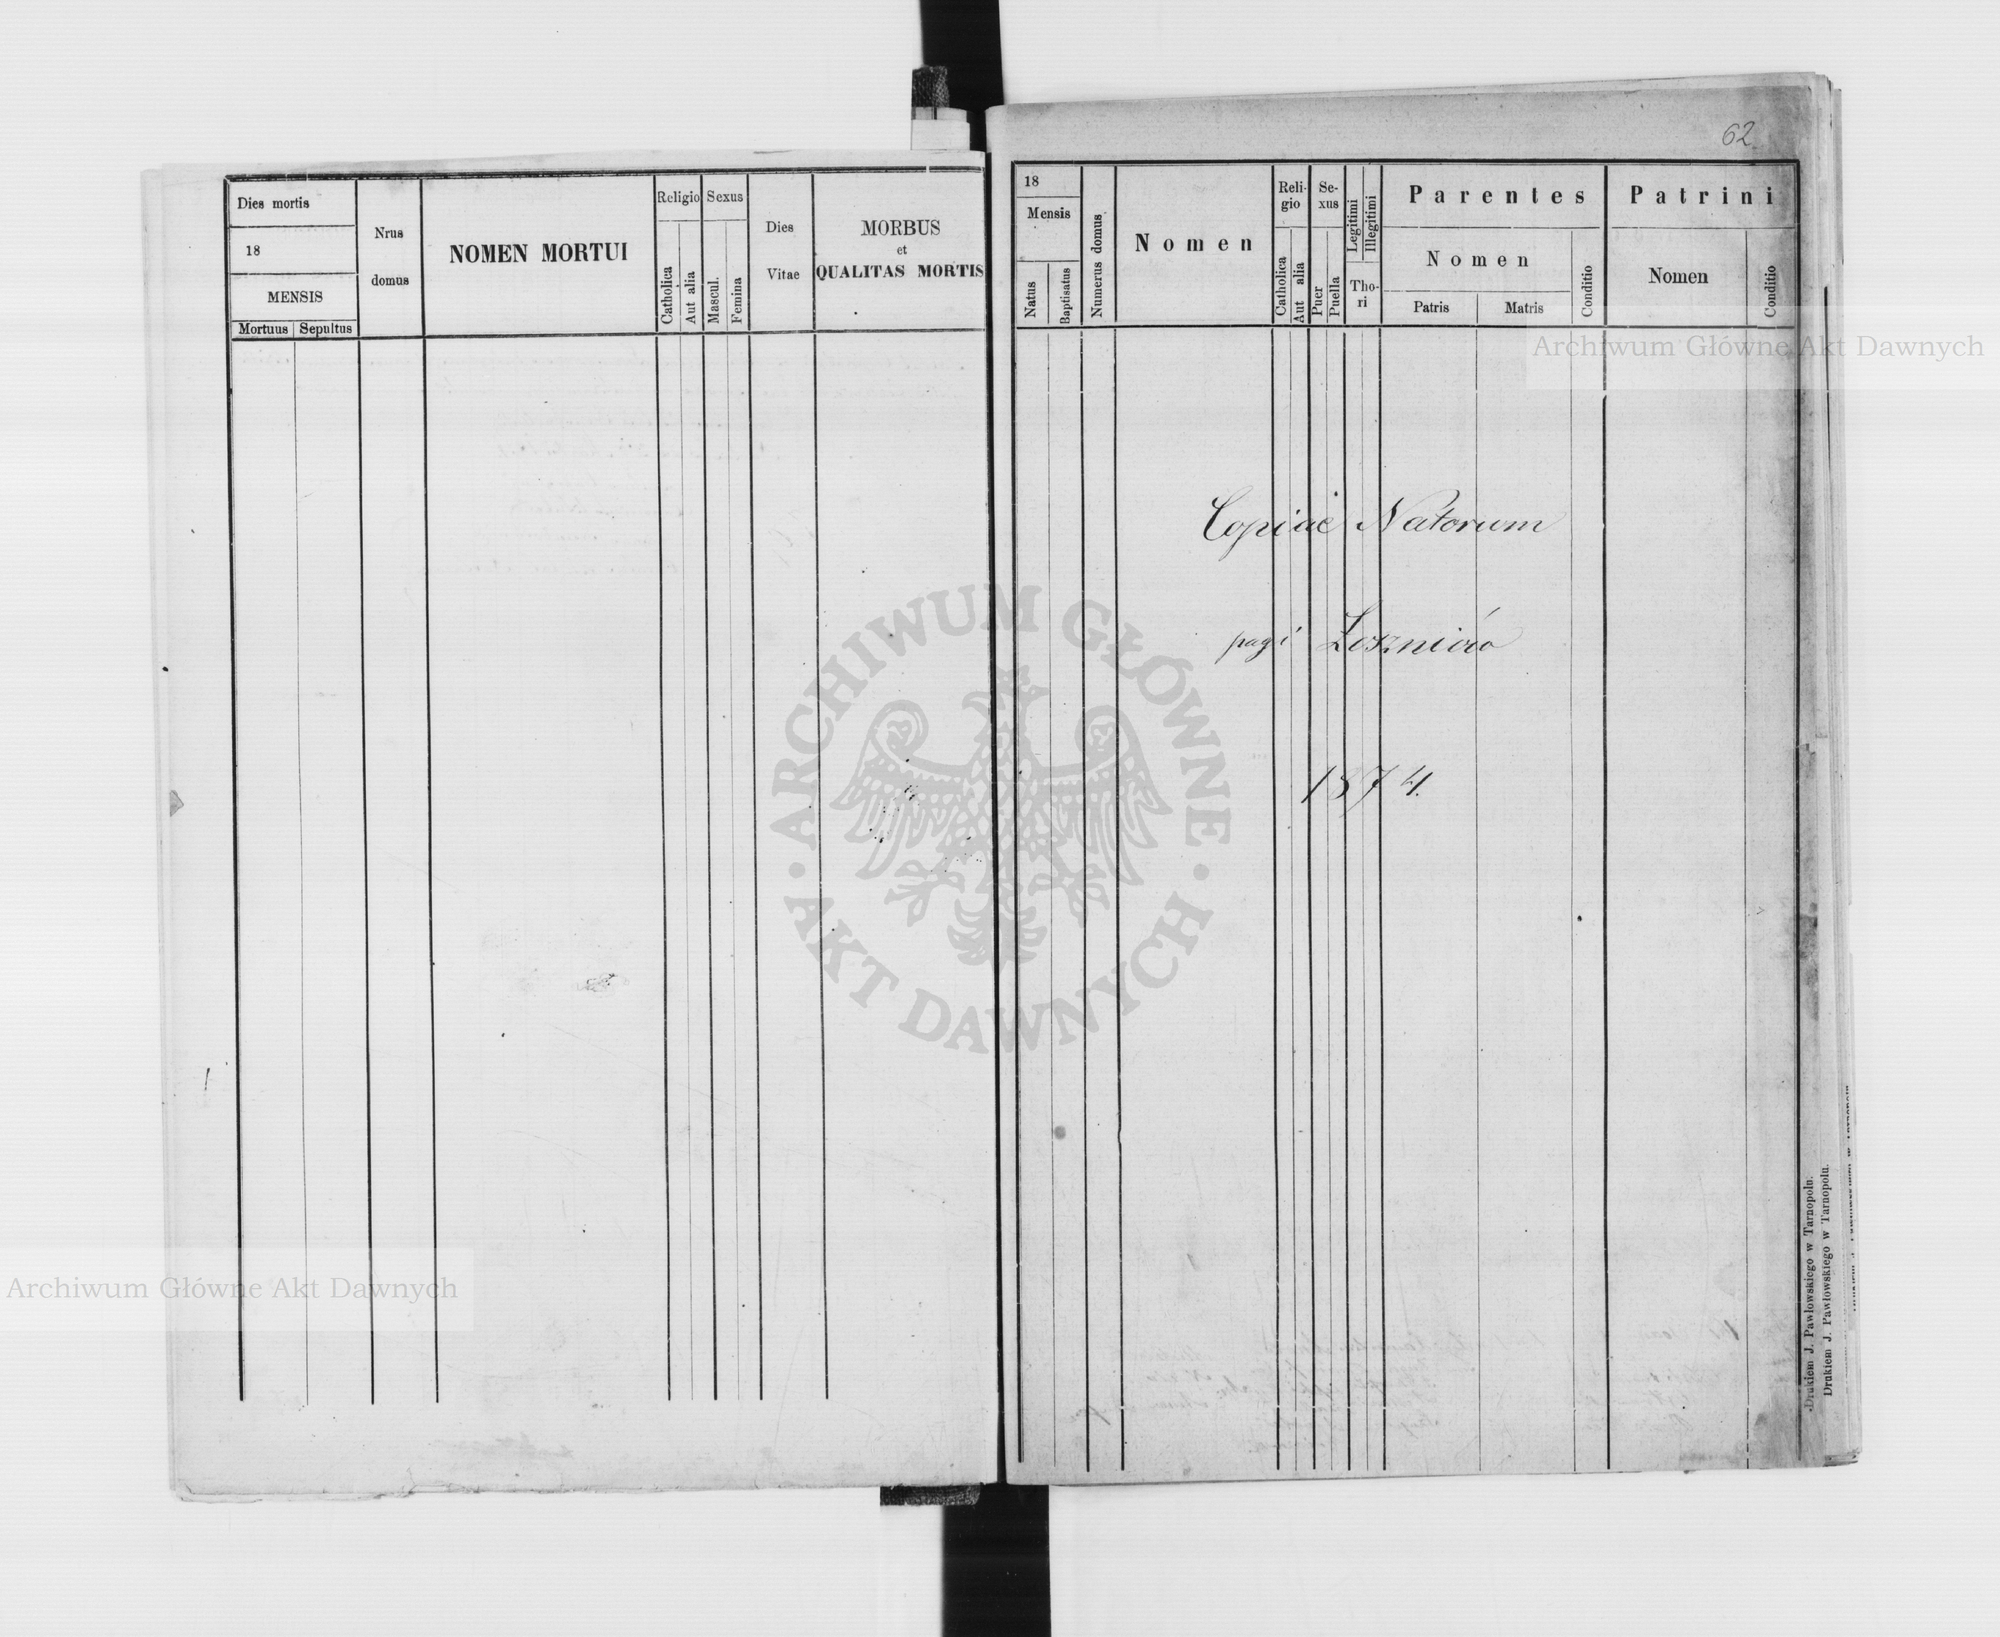 Dies mortis
18
MENSIS
Mortuus Sepultus
Nrus domus
NOMEN MORTUI
Religio
Catholica
Aut alia
Sexus
Mascul.
Femina
Dies Vitae
MORBUS
et
QUALITAS MORTIS
62
18
Mensis
Natus
Baptisatus
Numerus domus
Nomen
Religio
Catholica
Aut alia
Sexus
Puer
Puella
Legitimi
Illegitimi
Thori
Parentes
Nomen
Patris
Matris
Conditio
Patrini
Nomen
Conditio
Copiae Natorum
pagi Łoszniów
1874.
Drukiem J. Pawłowskiego w Tarnopolu.
Drukiem J. Pawłowskiego w Tarnopolu.
Archiwum Główne Akt Dawnych
ARCHIWUM GŁÓWNE
AKT DAWNYCH
Archiwum Główne Akt Dawnych